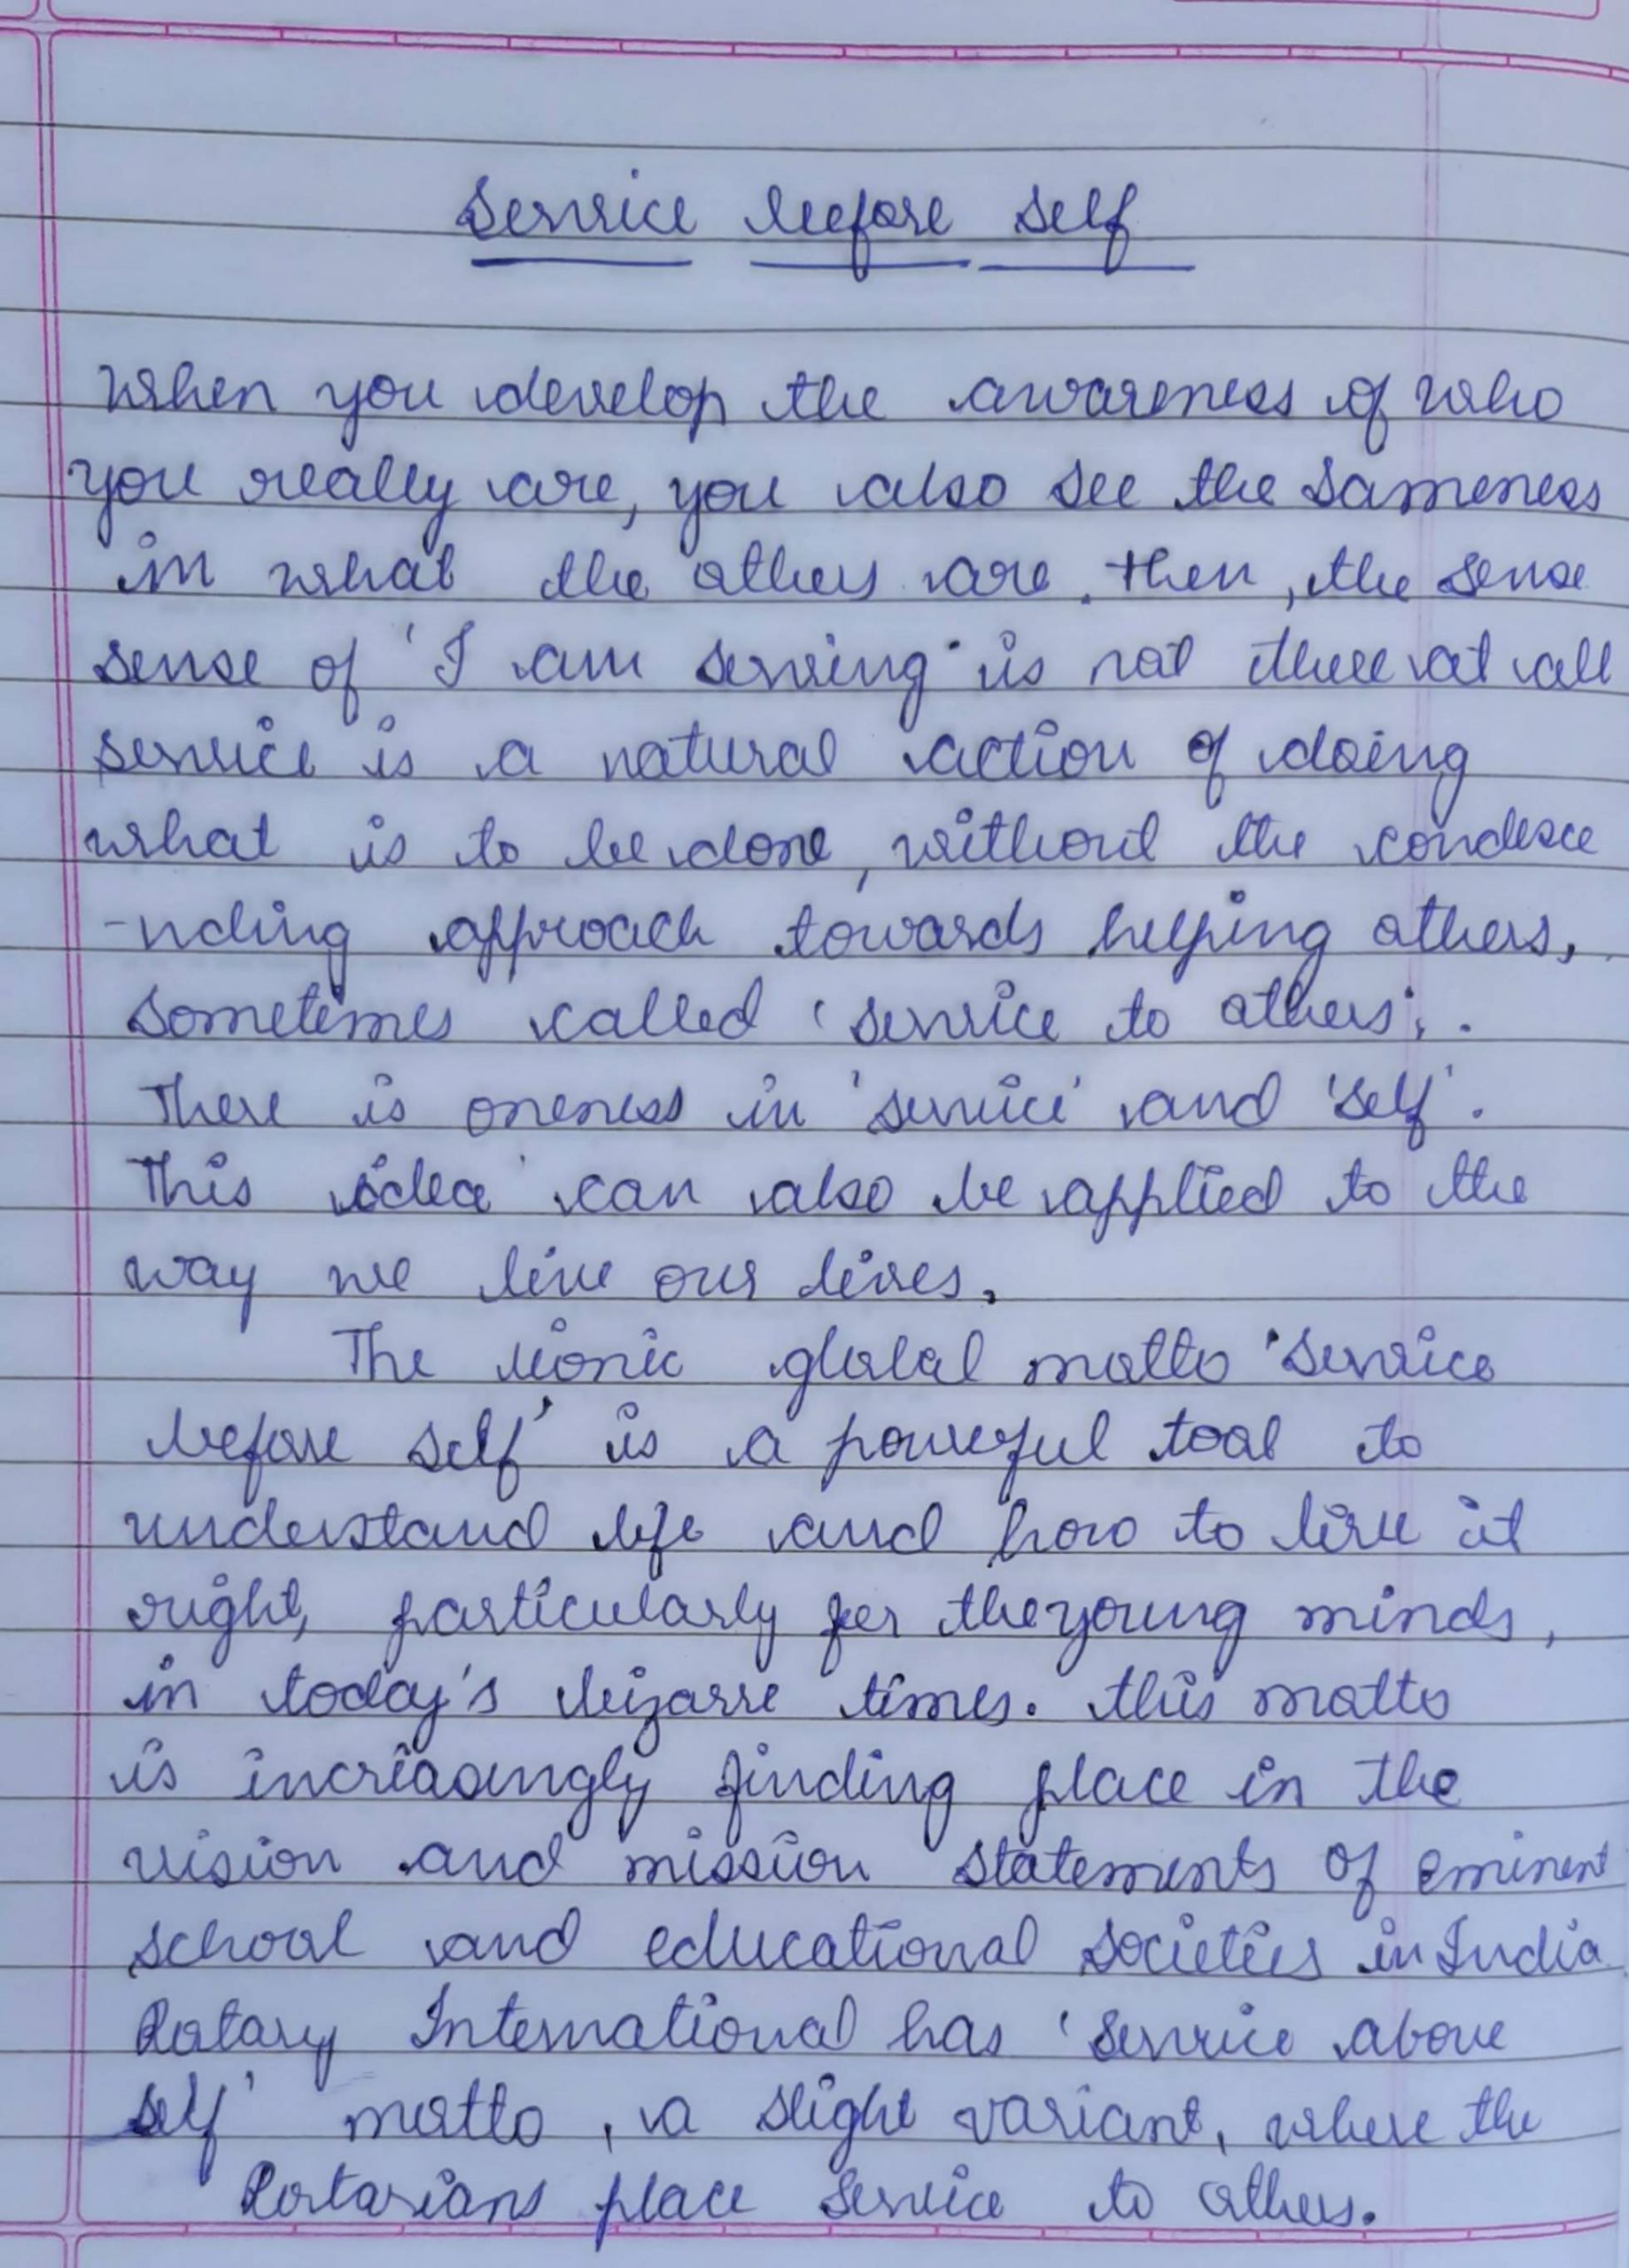 Service before self
When you develop the awareness of who
you really are, you also see the sameness
in what the others are. Then, the sense
sense of 'I am serving' is not there at all
service is a natural action of doing
what is to be done, without the condesce
-nding approach towards helping others,
sometimes called 'service to others'.
There is oneness in 'service' and 'self'.
This idea can also be applied to the
way we live our lives.
The iconic global motto 'service
before self' is a powerful tool to
understand life and how to live it
right, particularly for the young minds,
in today's bizarre times. this motto
is increasingly finding place in the
vision and mission statements of eminent
school and educational societies in India.
Rotary International has 'service above
self' motto, a slight variant, where the
Rotarians place service to others.